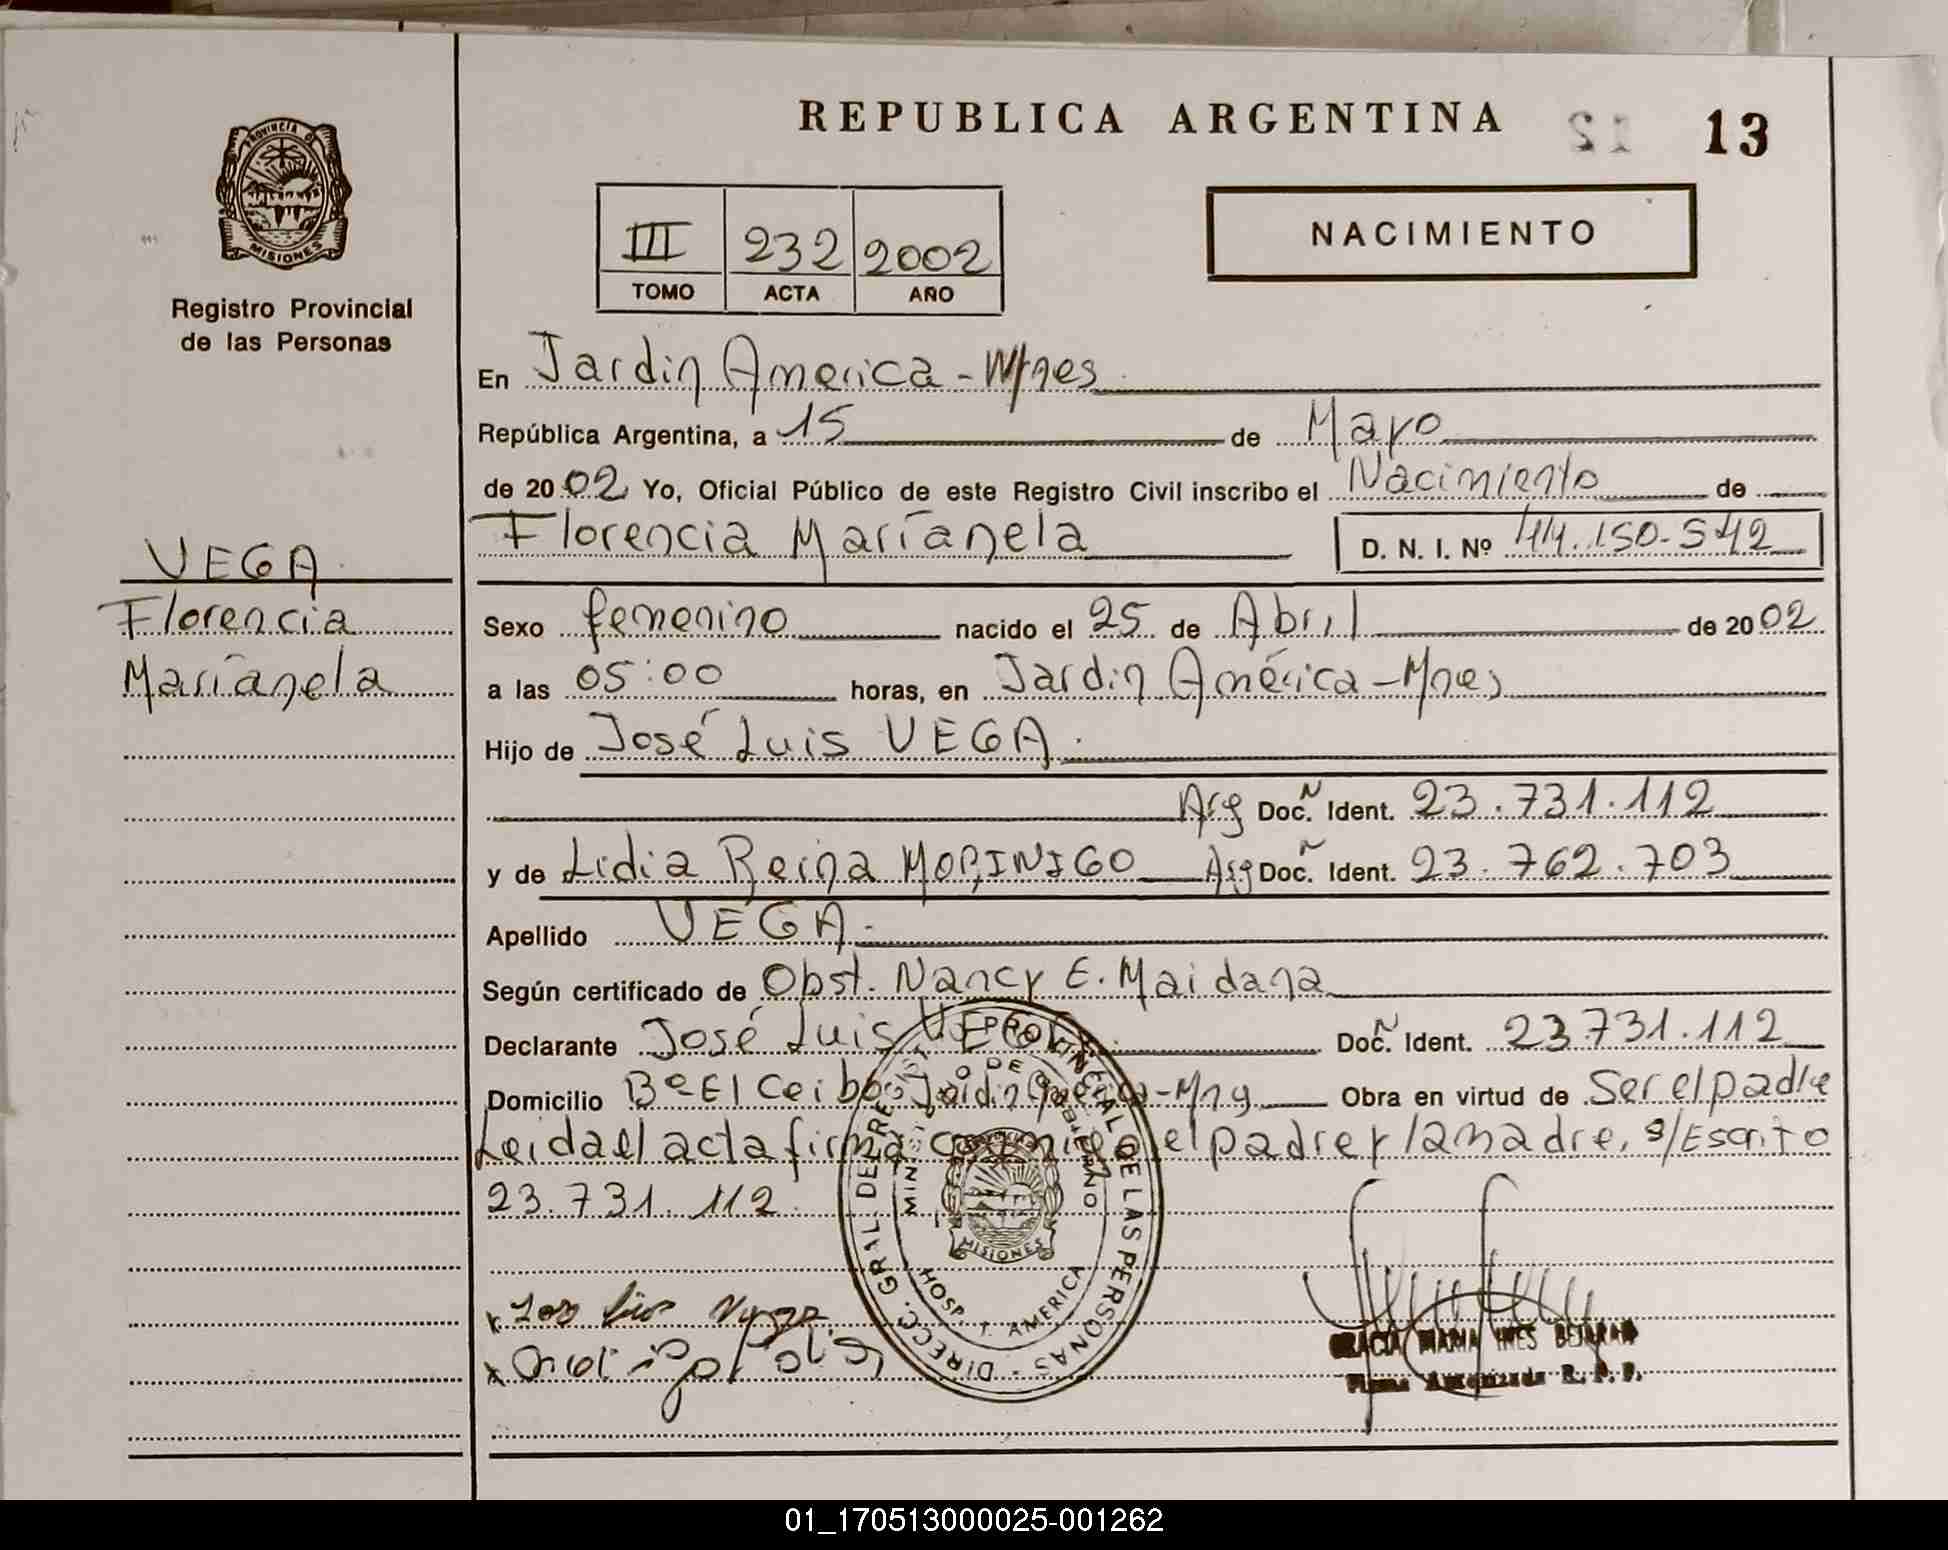 REPUBLICA ARGENTINA
13
PROVINCIA DE MISIONES
Registro Provincial
de las Personas
III 232 2002
TOMO ACTA AÑO
NACIMIENTO
En Jardin America - Mnes
República Argentina, a 15 de Mayo
de 2002 Yo, Oficial Público de este Registro Civil inscribo el Nacimiento de
Florencia Marianela D. N. I. Nº 44.150.542
VEGA
Florencia
Marianela
Sexo femenino nacido el 25 de Abril de 2002
a las 05:00 horas, en Jardin América - Mnes
Hijo de José Luis VEGA.
Arg Doc. Ident. 23.731.112
y de Lidia Reina MORINIGO Arg Doc. Ident. 23.762.703
Apellido VEGA.-
Según certificado de Obst. Nancy E. Maidana
Declarante José Luis VEGA Doc. Ident. 23731.112
Domicilio Bº El Ceibo, Jardin América - Mns Obra en virtud de Ser el padre
Leida el acta firma conmigo el padre y la madre, s/Escrito
23.731.112
DIRECC. GRAL. DE REGIST. PROVINCIAL DE LAS PERSONAS
MINISTERIO DE GOBIERNO
MISIONES
HOSP. J. AMERICA
GRACIA MARIA INES BEJARAN
Firma Autorizada R. P. P.
01_170513000025-001262